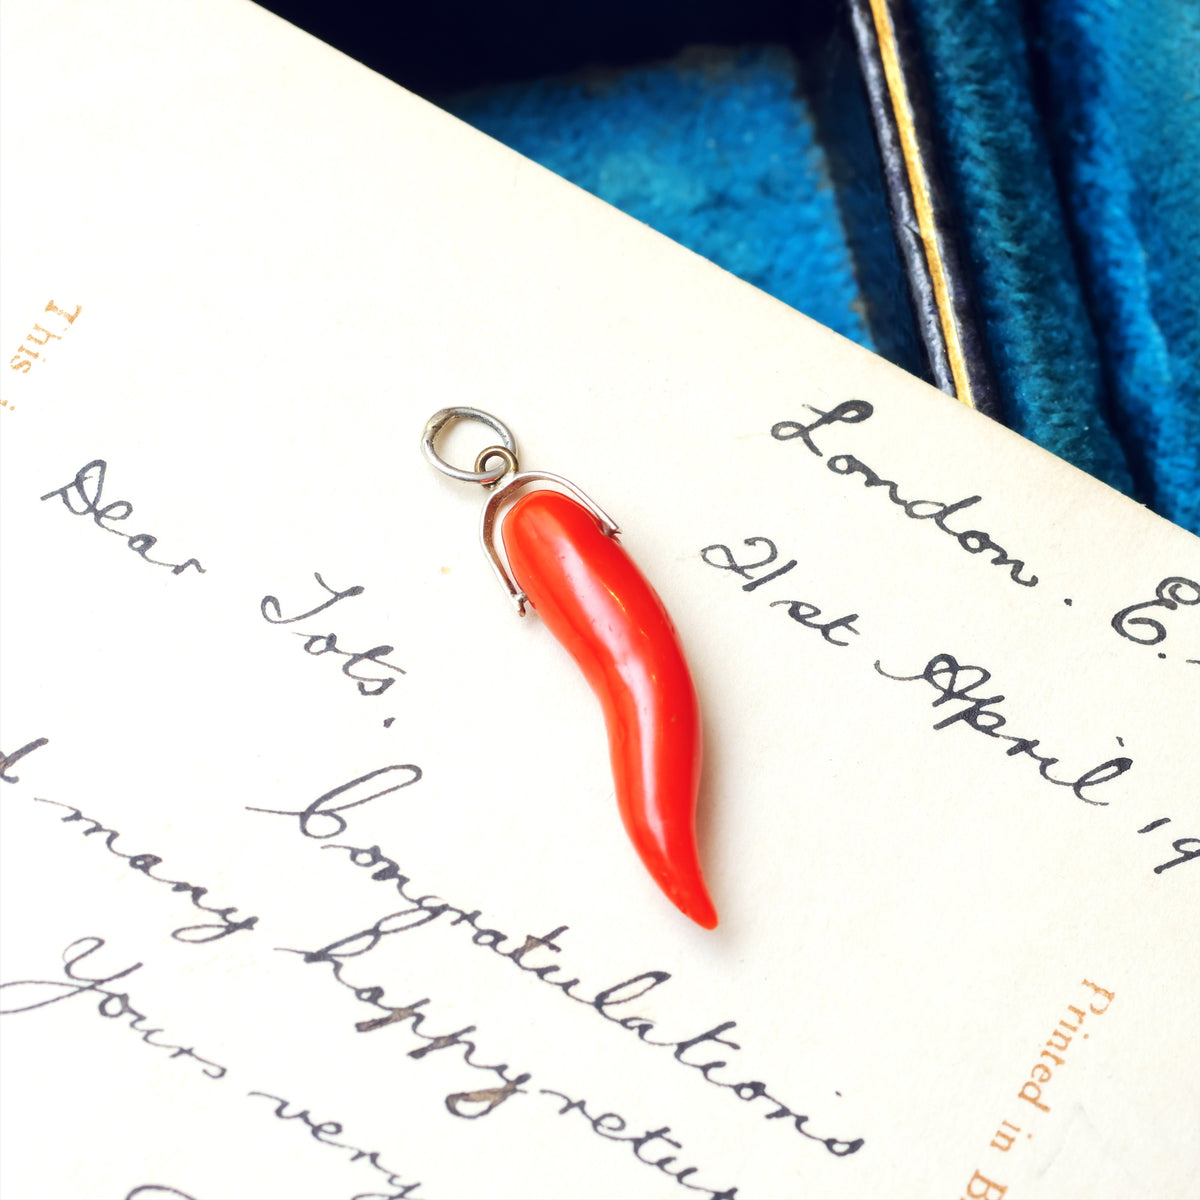 This
London. E.
21st April 19
Dear Tots,
Congratulations
many happy retur
Yours very
Printed in B